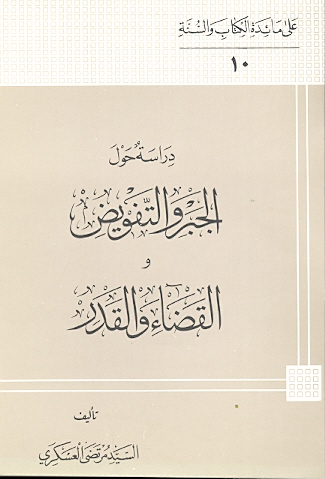 على مائدة الكتاب والسنة
١٠
دراسة حول
الجبر والتفويض
و
القضاء والقدر
تأليف
السيد مرتضى العسكري